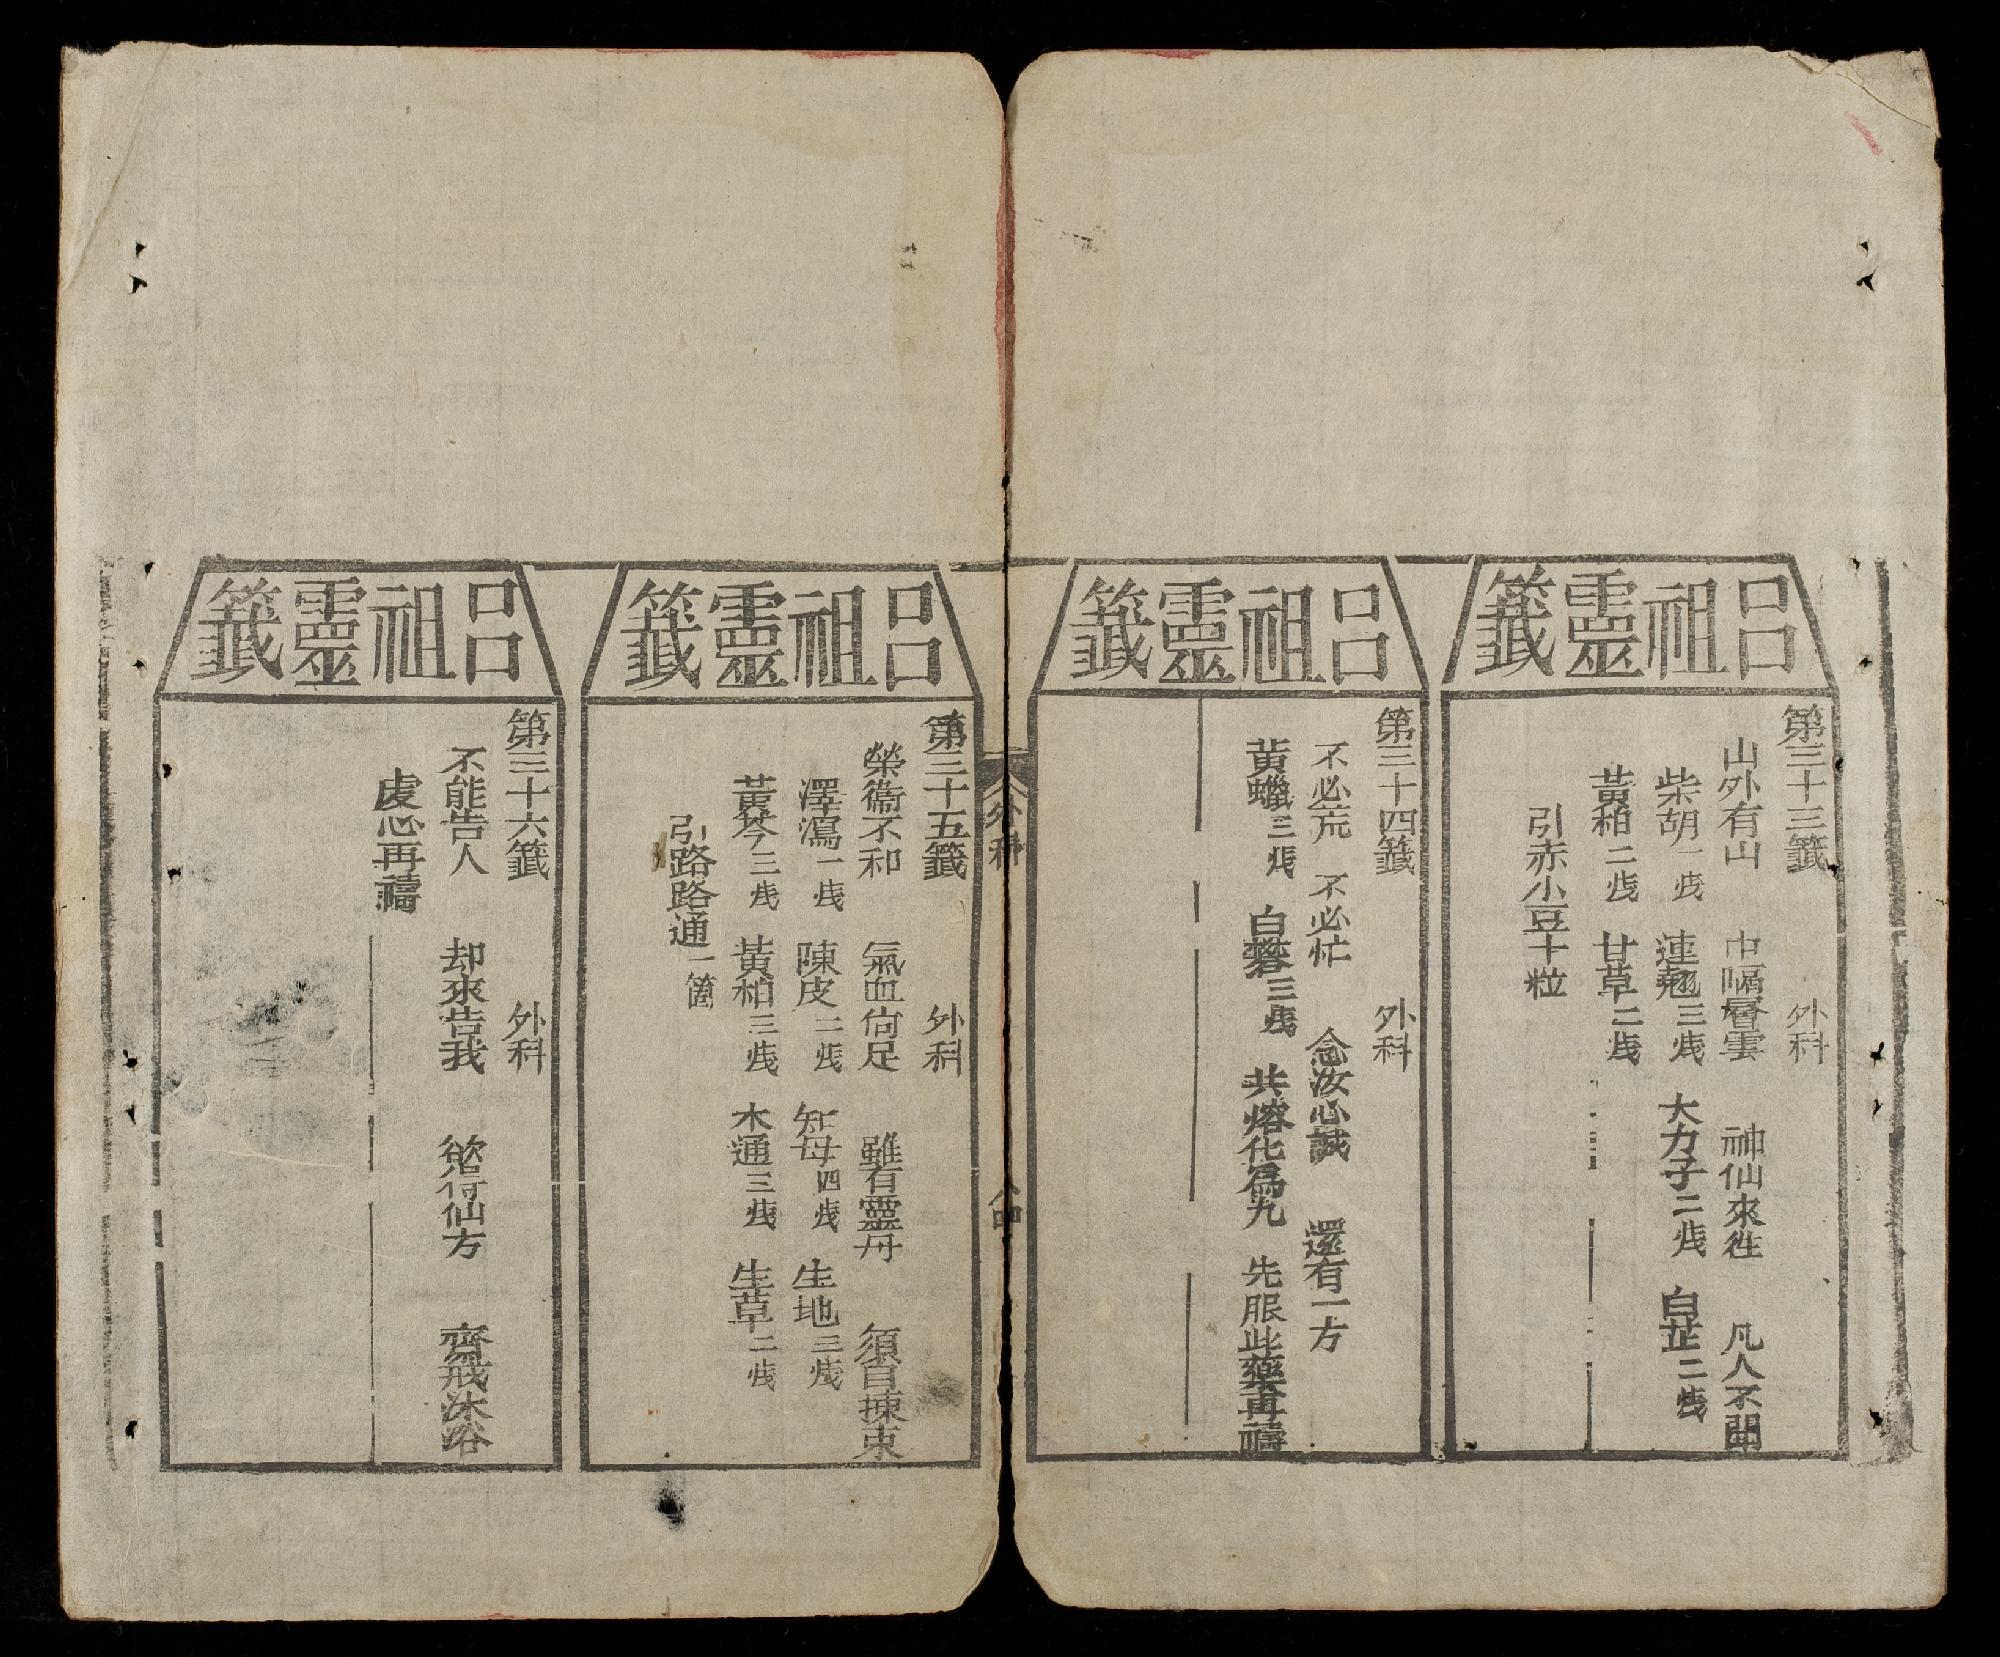 呂祖靈籤
第三十三籤 外科
山外有山 中隔層雲 神仙來徃 凡人不聞
柴胡一戋 連翹三戋 大力子二戋 白芷二戋
黃柏二戋 甘草二戋
引赤小豆十粒
呂祖靈籤
第三十四籤 外科
不必荒 不必忙 念汝心誠 還有一方
黃蠟三戋 白礬三戋 共熔化爲丸 先服此藥再禱
外科
呂祖靈籤
第三十五籤 外科
榮衞不和 氣血尙足 雖有靈丹 須自揀束
澤瀉一戋 陳皮二戋 知母四戋 生地三戋
黃芩三戋 黃柏三戋 木通三戋 生草二戋
引路路通一箇
呂祖靈籤
第三十六籤 外科
不能告人 却來告我 慾得仙方 齊戒沐浴
虔心再禱